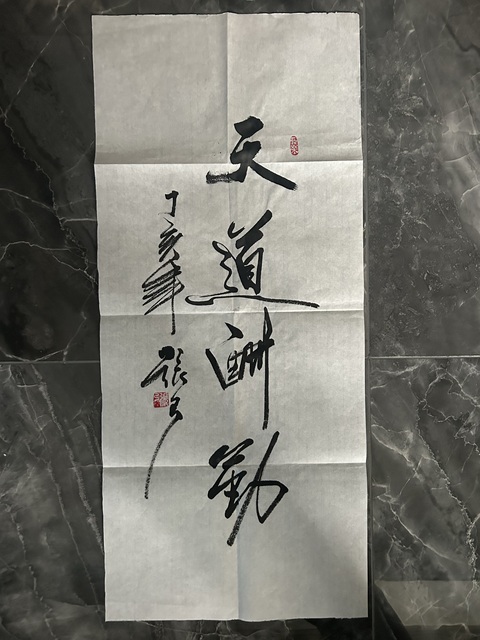 天道酬勤
丁亥年 張